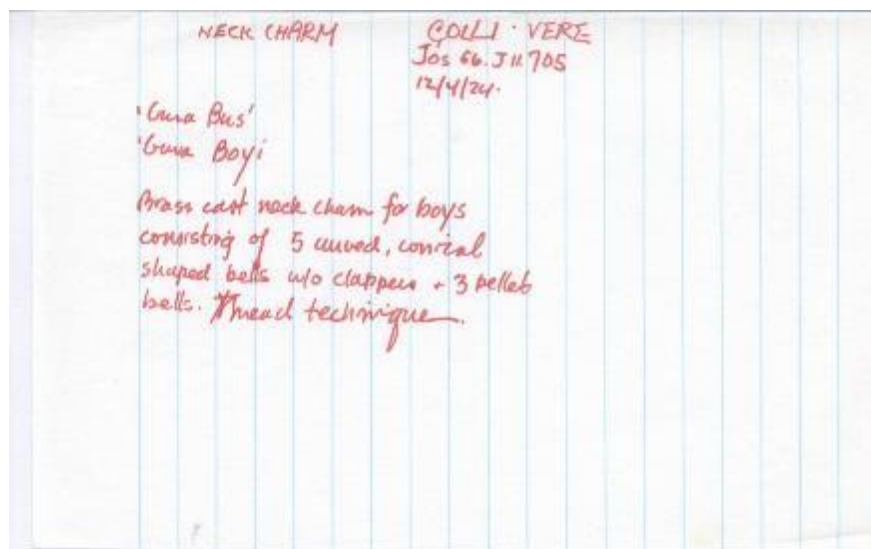 NECK CHARM
GOLLI · VERE
Jos 66. J 11 705
12/4/24.
'Gura Bus'
'Gura Boyi
Brass cast neck charm for boys
consisting of 5 curved, conical
shaped bells w/o clappers + 3 pellet
bells. Thread technique.